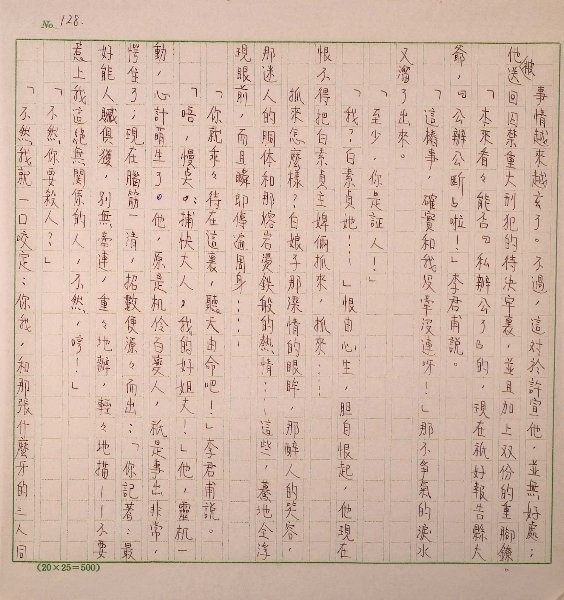 No. 128.
事情越來越玄了。不過，這對於許宣他，並無好處；
他被送回囚禁重大刑犯的待決牢裏，並且加上双份的重腳鐐。
「本來看々能否『私辦公了』的，現在祇好報告縣太
爺，『公辦公斷』啦！」李君甫說。
「這樁事，確實和我没牽没連呀！」那不争氣的淚水
又溜了出來。
「至少，你是証人！」
「我？白素貞她⋯⋯」恨由心生，胆自恨起，他現在
恨不得把白素貞主婢倆抓來，抓來⋯⋯
抓來怎麼樣？白娘子那深情的眼眸，那醉人的笑容，
那迷人的胴体和那熔岩燙鉄般的熱情⋯⋯這些，驀地全浮
現眼前，而且瞬即停遍周身⋯⋯⋯
「你就乖々待在這裏，聽天由命吧！」李君甫說。
「唔，慢點。捕快大人，我的好姐夫！」他，靈机一
動，心計萌生了。他，原是机伶百變人，祇是事出非常，
愕住了；現在腦筋一清，招數便源々而出：「你記著：最
好能人贓俱獲，別無牽連，重々地辦，輕々地描——不要
惹上我這絕無關係的人，不然，哼！」
「不然你要殺人？」
「不然我就一口咬定：你我，和那張什麼牙的三人同
(20×25=500)